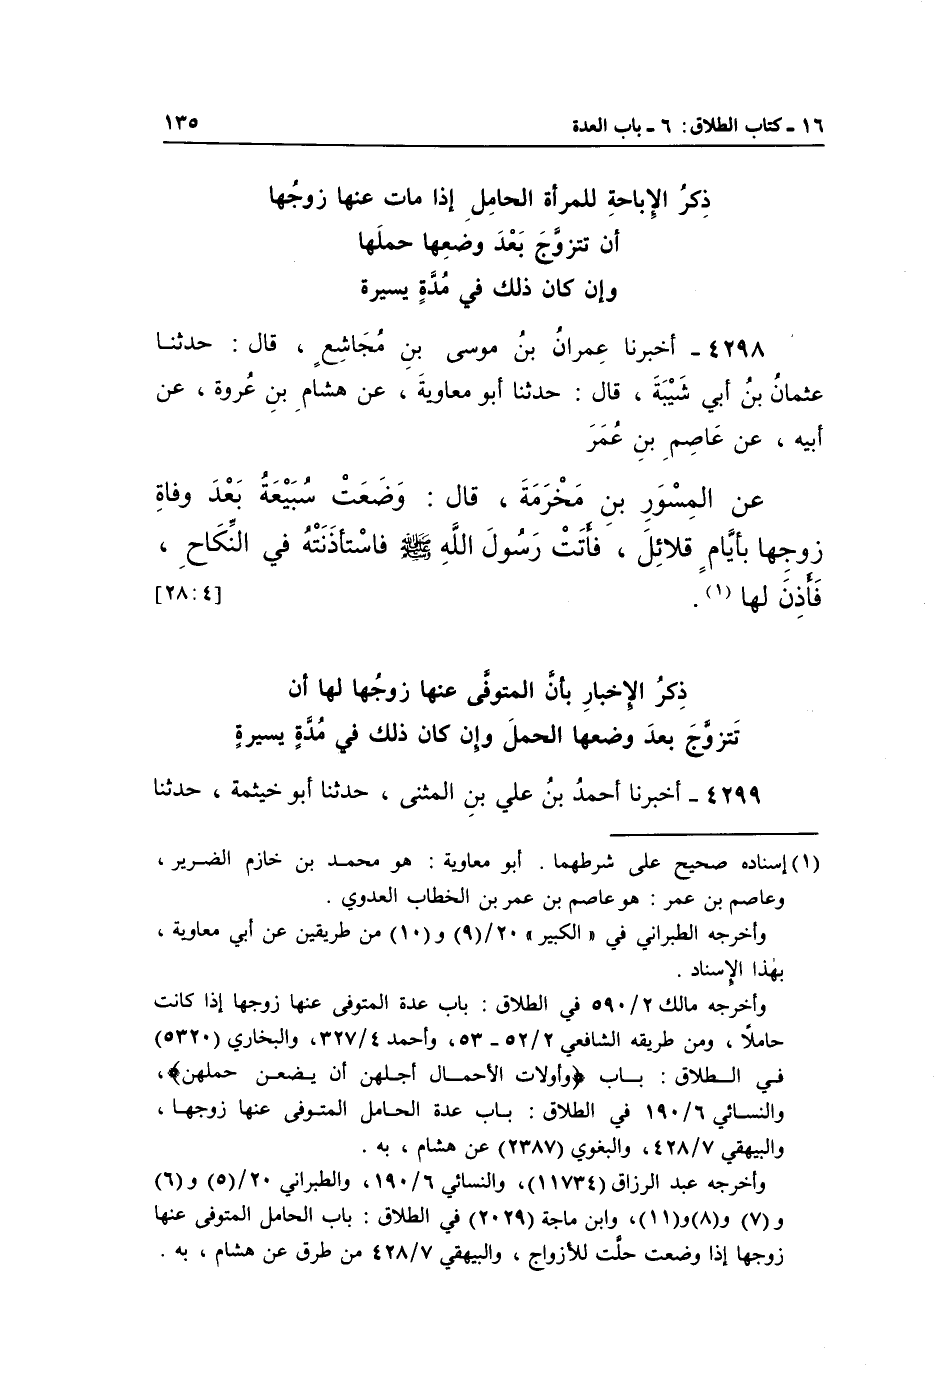 ١٦ ـ كتاب الطلاق: ٦ ـ باب العدة ١٣٥
ذِكرُ الإِباحةِ للمرأة الحامِلِ إذا مات عنها زوجُها
أن تتزوَّجَ بَعْدَ وضعِها حملَها
وإن كان ذلك في مُدَّةٍ يسيرة
٤٢٩٨ ـ أخبرنا عِمرانُ بنُ موسى بنِ مُجَاشِعٍ ، قال : حدثنا
عثمانُ بنُ أبي شَيْبَةَ ، قال : حدثنا أبو معاويةَ ، عن هشامِ بنِ عُروة ، عن
أبيه ، عن عَاصِمِ بنِ عُمَرَ
عن المِسْوَرِ بنِ مَخْرَمَةَ ، قال : وَضَعَتْ سُبَيْعَةُ بَعْدَ وفاةِ
زوجِها بأيَّامٍ قلائِلَ ، فَأَتَتْ رَسُولَ اللَّهِ ﷺ فاسْتأذَنَتْهُ في النِّكَاحِ ،
فَأَذِنَ لها (١) . [٢٨:٤]
ذِكرُ الإِخبارِ بأنَّ المتوفَّى عنها زوجُها لها أن
تَتزوَّجَ بعدَ وضعها الحملَ وإن كان ذلك في مُدَّةٍ يسيرةٍ
٤٢٩٩ ـ أخبرنا أحمدُ بنُ علي بنِ المثنى ، حدثنا أبو خيثمة ، حدثنا
(١) إسناده صحيح على شرطهما . أبو معاوية : هو محمد بن خازم الضرير ،
وعاصم بن عمر : هو عاصم بن عمر بن الخطاب العدوي .
وأخرجه الطبراني في « الكبير » ٢٠/(٩) و(١٠) من طريقين عن أبي معاوية ،
بهٰذا الإِسناد .
وأخرجه مالك ٥٩٠/٢ في الطلاق : باب عدة المتوفى عنها زوجها إذا كانت
حاملًا ، ومن طريقه الشافعي ٥٢/٢ ـ ٥٣، وأحمد ٣٢٧/٤، والبخاري (٥٣٢٠)
في الطلاق : باب ﴿وأولات الأحمال أجلهن أن يضعن حملهن﴾،
والنسائي ١٩٠/٦ في الطلاق : باب عدة الحامل المتوفى عنها زوجها ،
والبيهقي ٤٢٨/٧، والبغوي (٢٣٨٧) عن هشام ، به .
وأخرجه عبد الرزاق (١١٧٣٤)، والنسائي ١٩٠/٦، والطبراني ٢٠/(٥) و(٦)
و(٧) و(٨)و(١١)، وابن ماجة (٢٠٢٩) في الطلاق : باب الحامل المتوفى عنها
زوجها إذا وضعت حلَّت للأزواج ، والبيهقي ٤٢٨/٧ من طرق عن هشام ، به .